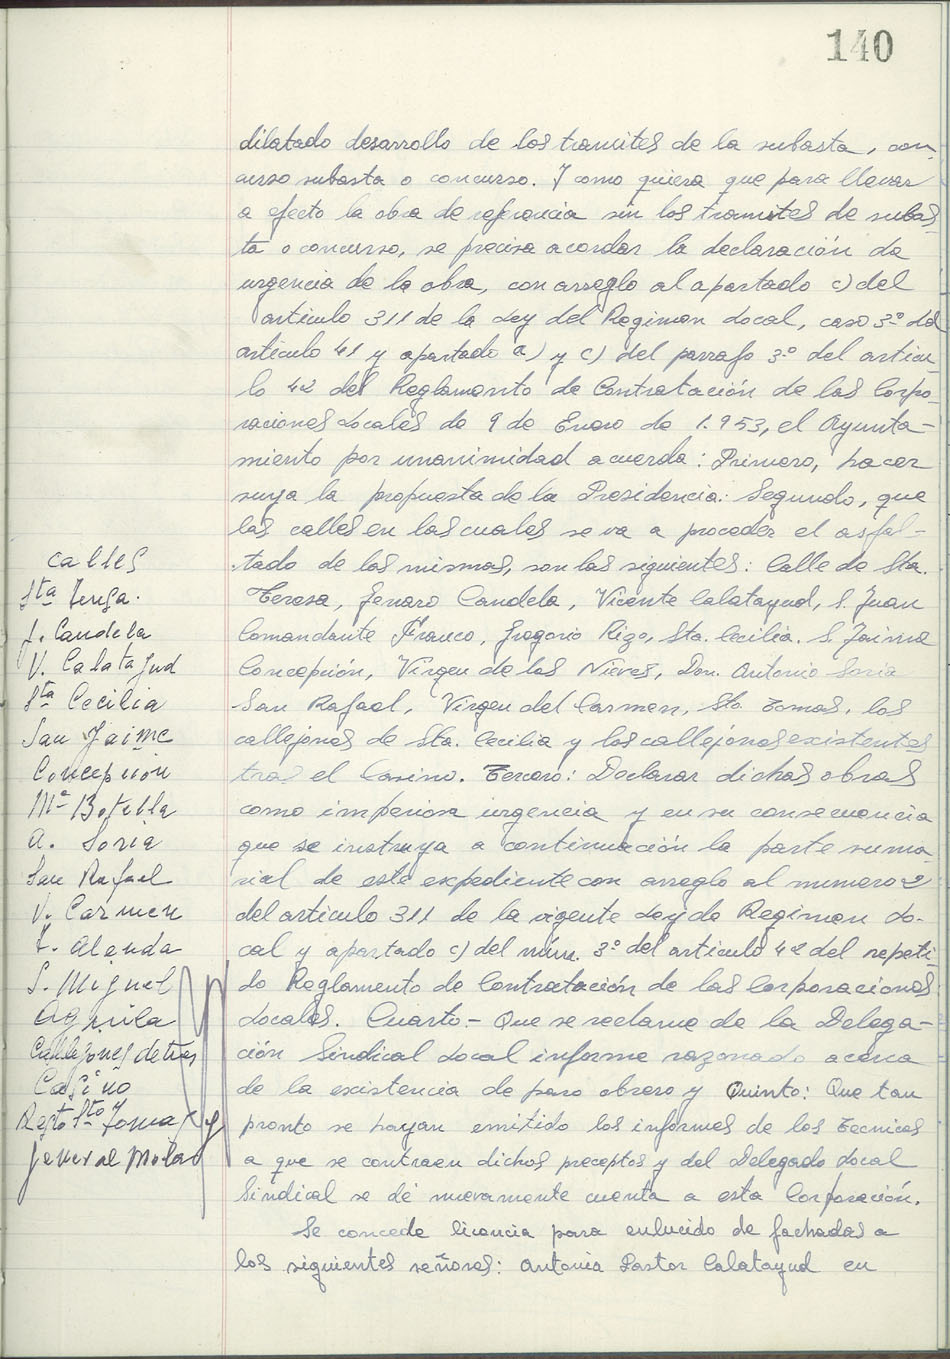 140
dilatado desarrollo de los tramites de la subasta, con-
curso subasta o concurso. Y como quiera que para llevar
a efecto la obra de referencia sin los tramites de subas-
ta o concurso, se precisa acordar la declaración de
urgencia de la obra, con arreglo al apartado c) del
articulo 311 de la Ley del Regimen Local, caso 3º del
articulo 41 y apartado a) y c) del parrafo 3º del articu-
lo 42 del Reglamento de Contratación de las Corpo-
raciones Locales de 9 de Enero de 1.953, el Ayunta-
miento por unanimidad acuerda: Primero, hacer
suya la propuesta de la Presidencia: Segundo, que
las calles en las cuales se va a proceder el asfal-
tado de las mismas, son las siguientes: Calle de Sta.
Teresa, Jenaro Candela, Vicente Calatayud, S. Juan
Comandante Franco, Gregorio Rizo, Sta. Cecilia. S. Jaime
Concepción, Virgen de las Nieves, Don. Antonio Soria
San Rafael, Virgen del Carmen, Sto. Tomas, los
callejones de Sta. Cecilia y los callejones existentes
tras el Casino. Tercero: Declarar dichas obras
como imperiosa urgencia y en su consecuencia
que se instruya a continuación la parte suma-
rial de este expediente con arreglo al numero 2
del articulo 311 de la vigente Ley de Regimen Lo-
cal y apartado c) del núm. 3º del articulo 42 del repeti-
do Reglamento de Contratación de las Corporaciones
Locales. Cuarto.- Que se reclame de la Delega-
ción Sindical Local informe razonado acerca
de la existencia de paro obrero y Quinto: Que tan
pronto se hayan emitido los informes de los Tecnicos
a que se contraen dichos preceptos y del Delegado Local
Sindical se dé nuevamente cuenta a esta Corporación.
Se concede licencia para enlucido de fachadas a
los siguientes señores: Antonia Pastor Calatayud en
calles
Sta Teresa.
J. Candela
V. Calatajud
Sta Cecilia
San Jaime
Concepcion
Mª Botella
A. Soria
San Rafael
V. Carmen
Alenda
S. Miguel
Aguila
Callejones detras
Casino
Resto Sto Tomas y
General Mola